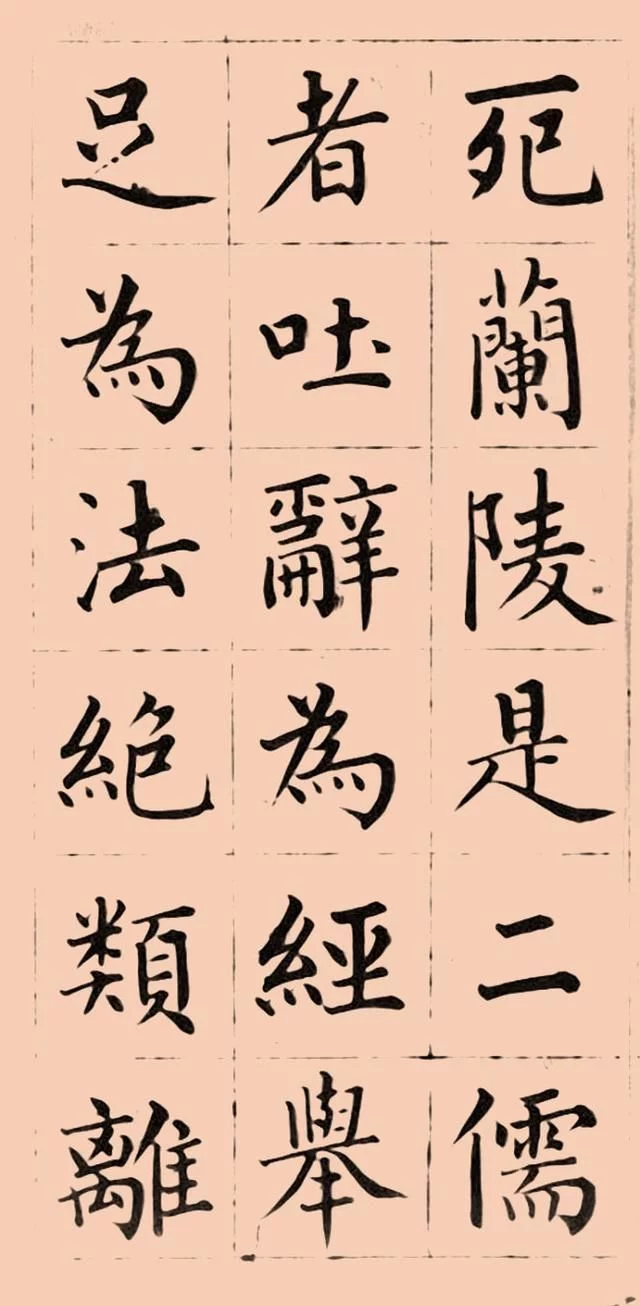 死蘭陵是二儒
者吐辭為經舉
足為法絕類離